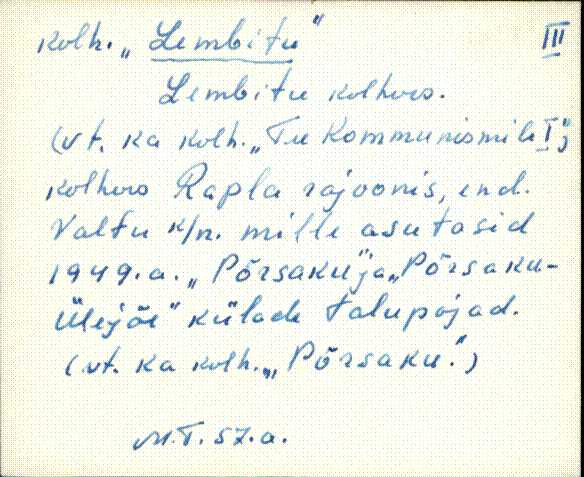 kolh. „Lembitu" III
Lembitu kolhoos.
(vt. ka kolh. „Tee Kommunismile I";
kolhoos Rapla rajoonis, end.
Valtu k/n. mille asutasid
1949.a. „Põrsaku" ja „Põrsaku-
Ülejõe" külade talupojad.
(vt. ka kolh. „Põrsaku".)
M.T. 57.a.